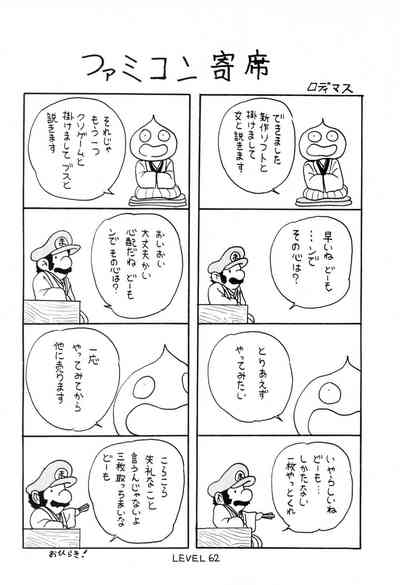 ファミコン寄席
ロデマス
できました
新作ソフトと
掛けまして
文と説きます
早いね どーも
・・・ンで
その心は？
とりあえず
やってみたい
いやらしいね
どーも…
しかたない
一枚やっとくれ
それじゃ
もう一つ
クソゲームと
掛けまして ブスと
説きます
おいおい
大丈夫かい
心配だね どーも
ンで その心は？
一応
やってみてから
他に売ります
ころころ
失礼なこと
言うんじゃないよ
三枚取っちまいな
どーも
おひらき！
LEVEL 62